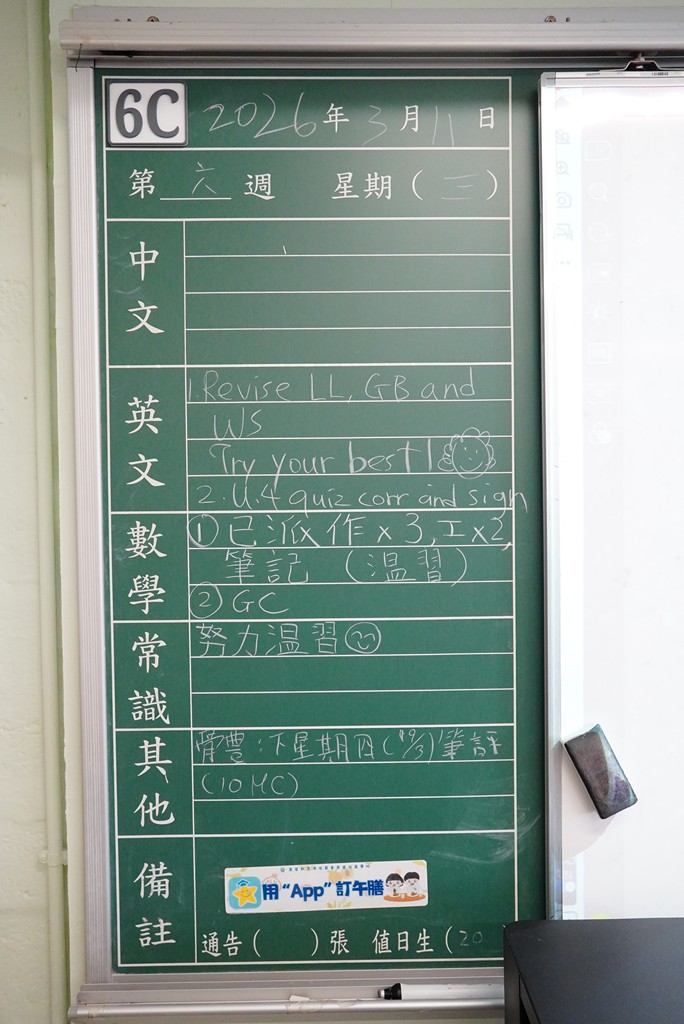 6C 2026年3月11日
第六週 星期(三)
中文
英文
1.Revise LL, GB and
WS
Try your best!
2.U.4 quiz corr and sign
數學
①已派作x3,工x2,
筆記 (溫習)
②GC
常識
努力溫習
其他
體豊:下星期四(19/3)筆評
(10MC)
備註
用“App”訂午膳
通告( )張 值日生(20